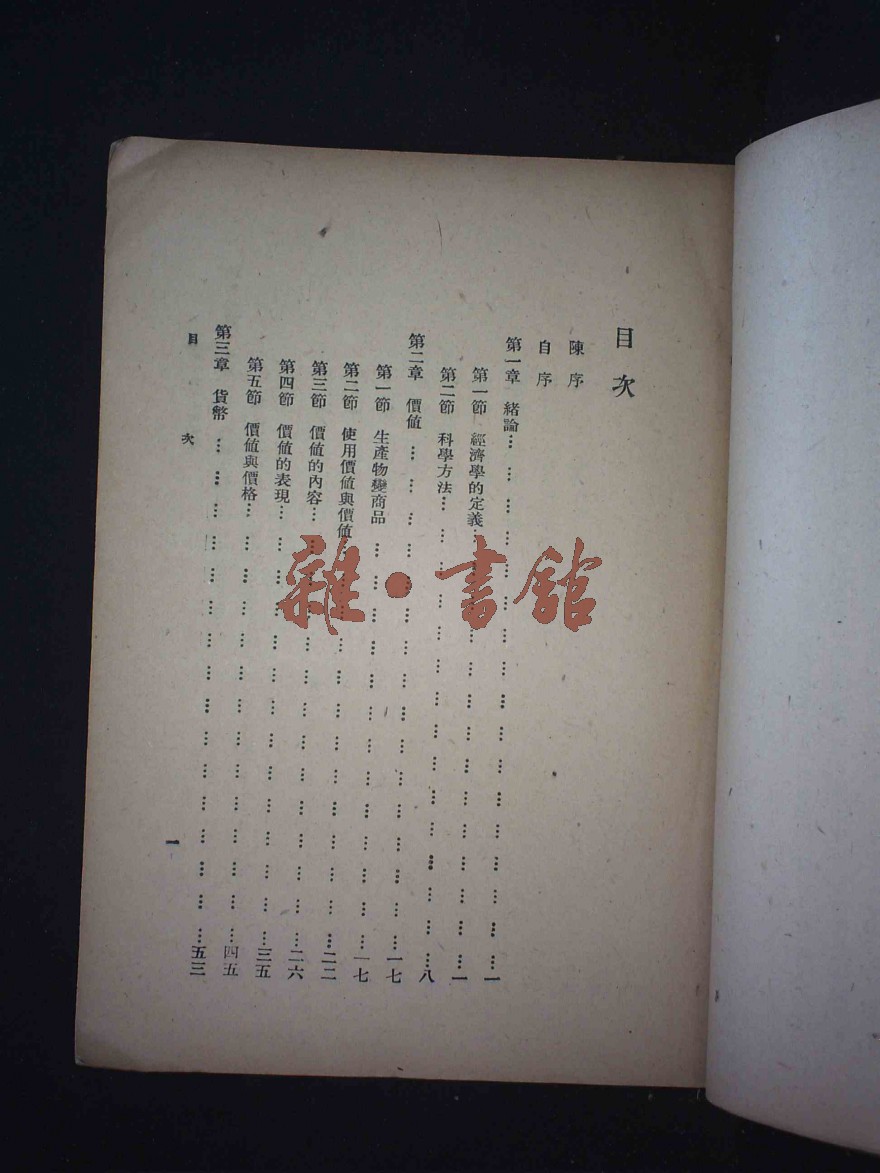 目次
陳序
自序
第一章 緒論……………………一
第一節 經濟學的定義……………………一
第二節 科學方法……………………八
第二章 價值……………………一七
第一節 生產物變商品……………………一七
第二節 使用價值與價值……………………二二
第三節 價值的內容……………………二六
第四節 價值的表現……………………三五
第五節 價值與價格……………………四五
第三章 貨幣……………………五三
目次
一
雜·書館